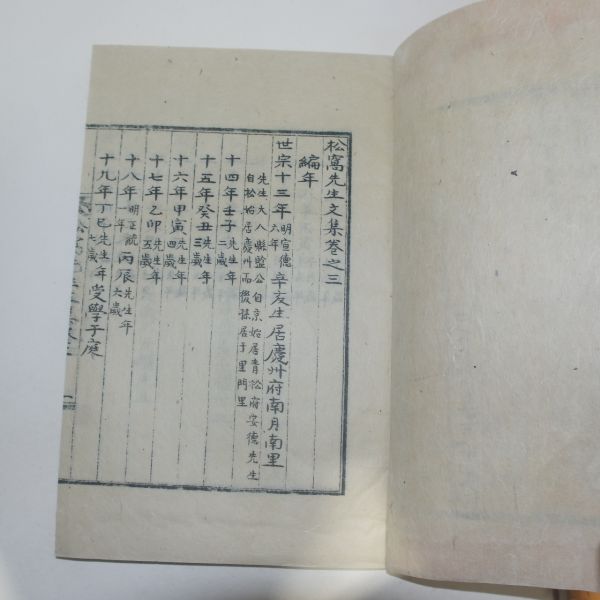 松窩先生文集卷之三
編年
世宗十三年明宣德六年辛亥生居慶州府南月南里
先生大人縣監公自京始居青松府安德先生
自松始居慶州而後居于里門里
十四年壬子先生年二歲
十五年癸丑先生年三歲
十六年甲寅先生年四歲
十七年乙卯先生年五歲
十八年明正統一年丙辰先生年六歲
十九年丁巳先生年七歲受學于